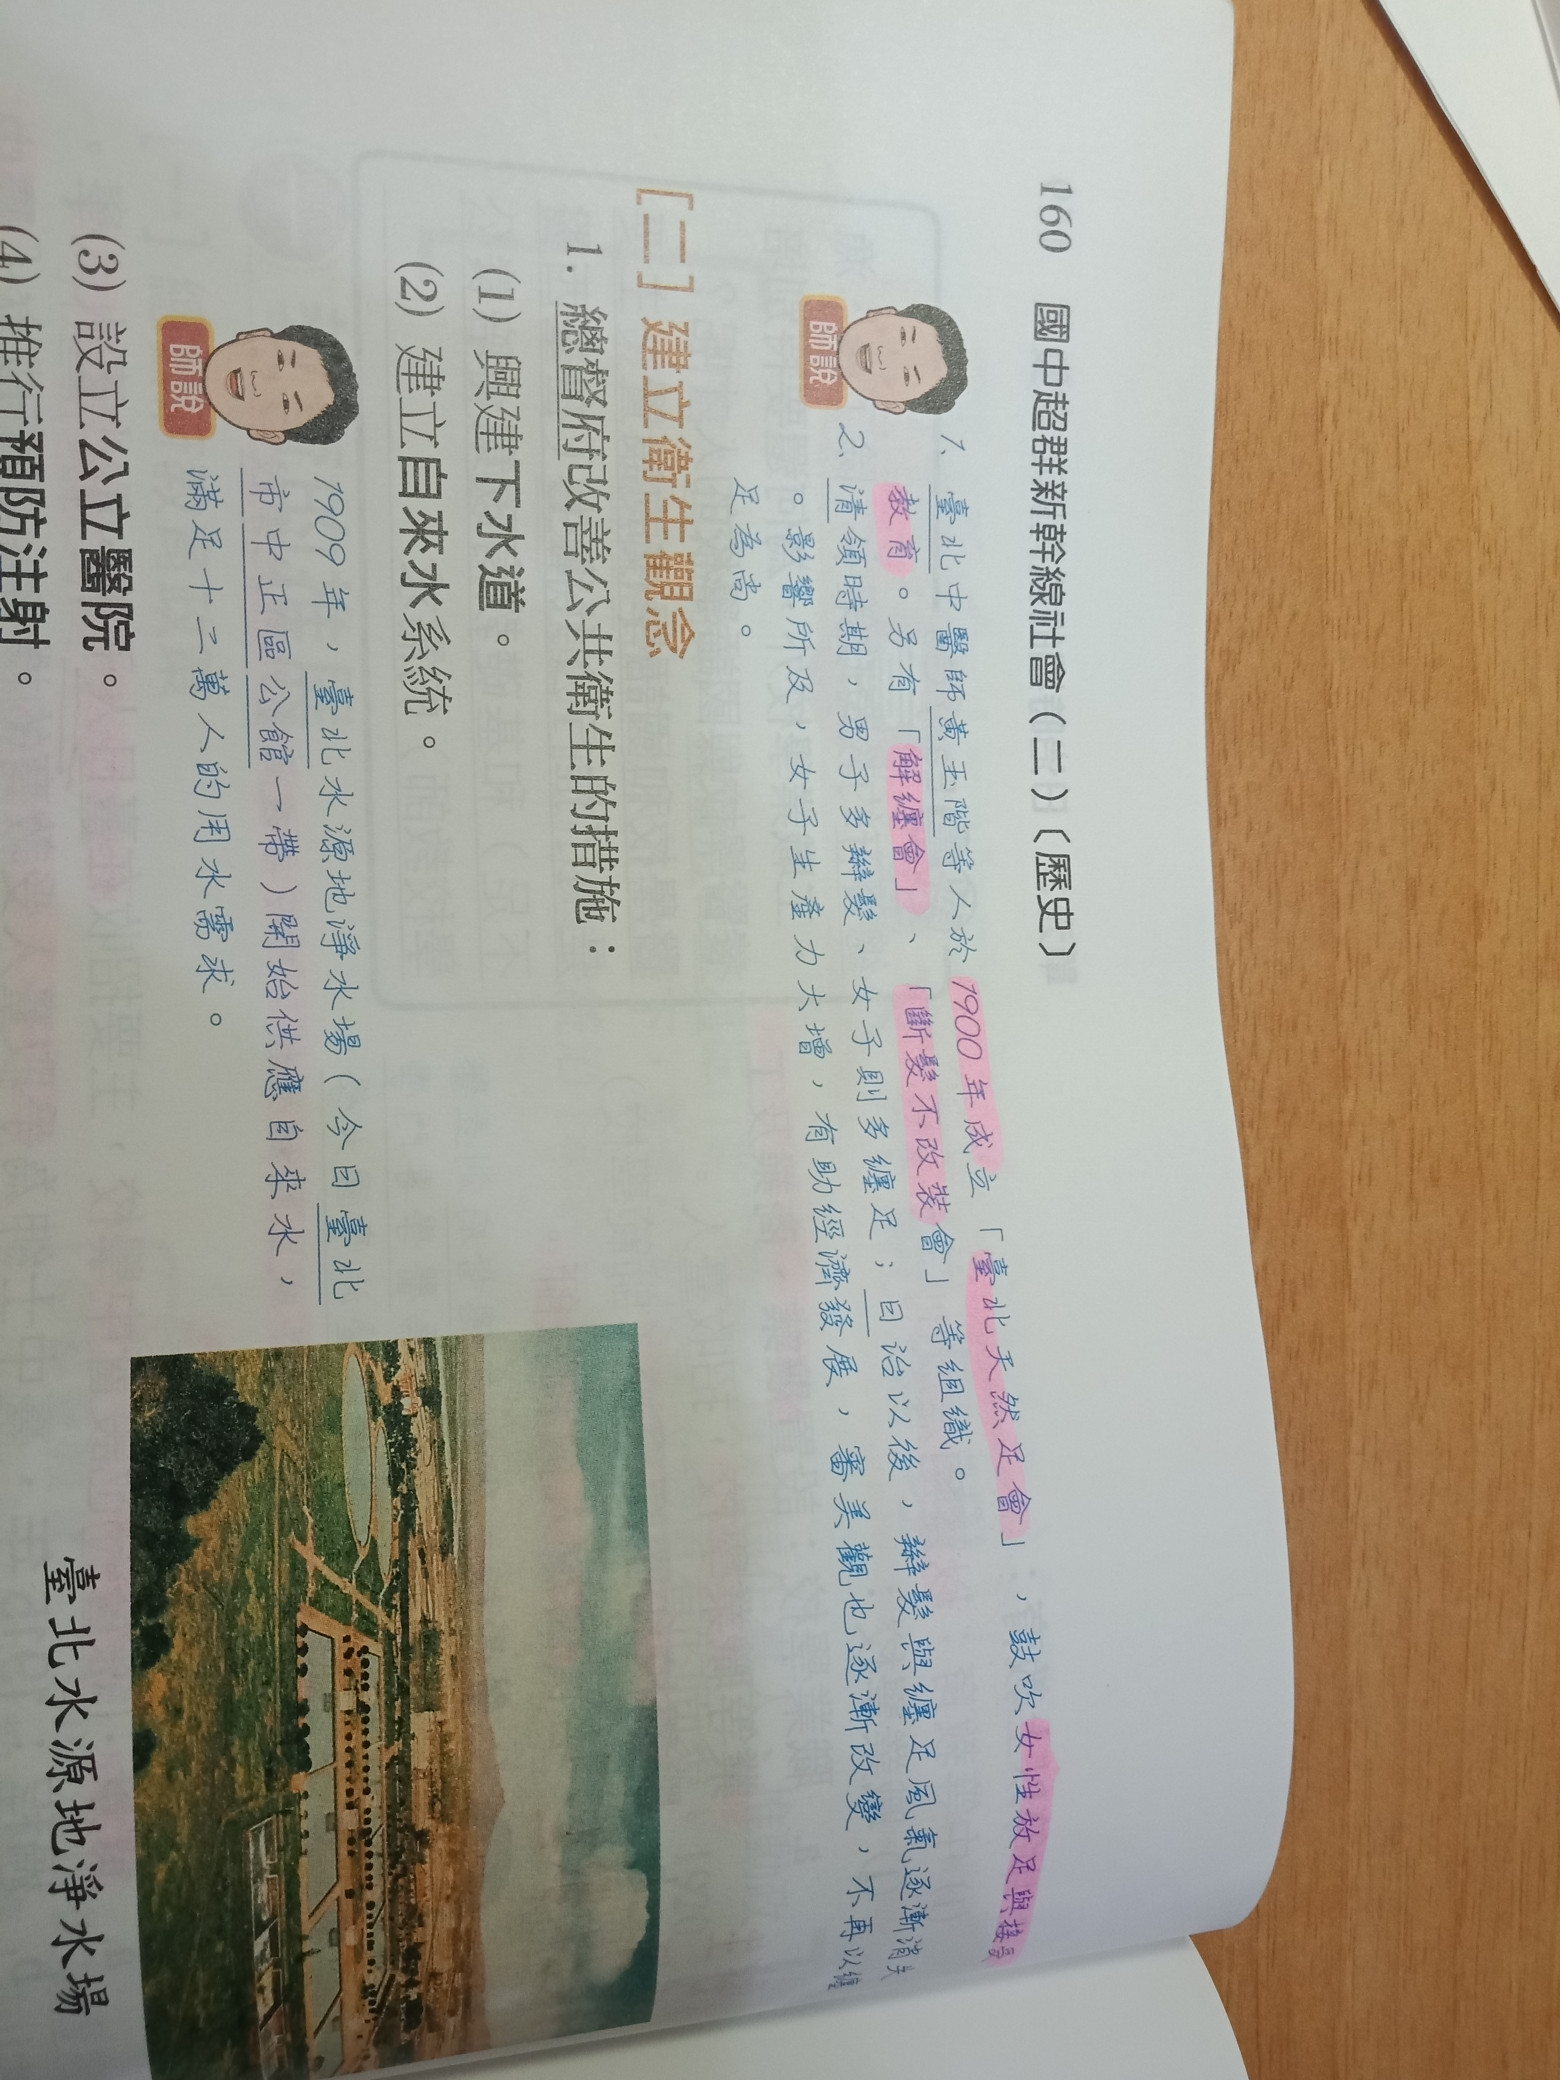 160 國中超群新幹線社會(二)〔歷史〕
師說
1、臺北中醫師黃玉階等人於1900年成立「臺北天然足會」,鼓吹女性放足與接受
教育。另有「解纏會」、「斷髮不改裝會」等組織。
2、清領時期,男子多辮髮、女子則多纏足;日治以後,辮髮與纏足風氣逐漸消失
。影響所及,女子生產力大增,有助經濟發展,審美觀也逐漸改變,不再以纏
足為尚。
[二]建立衛生觀念
1. 總督府改善公共衛生的措施:
(1) 興建下水道。
(2) 建立自來水系統。
師說
1909年,臺北水源地淨水場(今日臺北
市中正區公館一帶)開始供應自來水,
滿足十二萬人的用水需求。
(3) 設立公立醫院。
(4) 推行預防注射。
臺北水源地淨水場